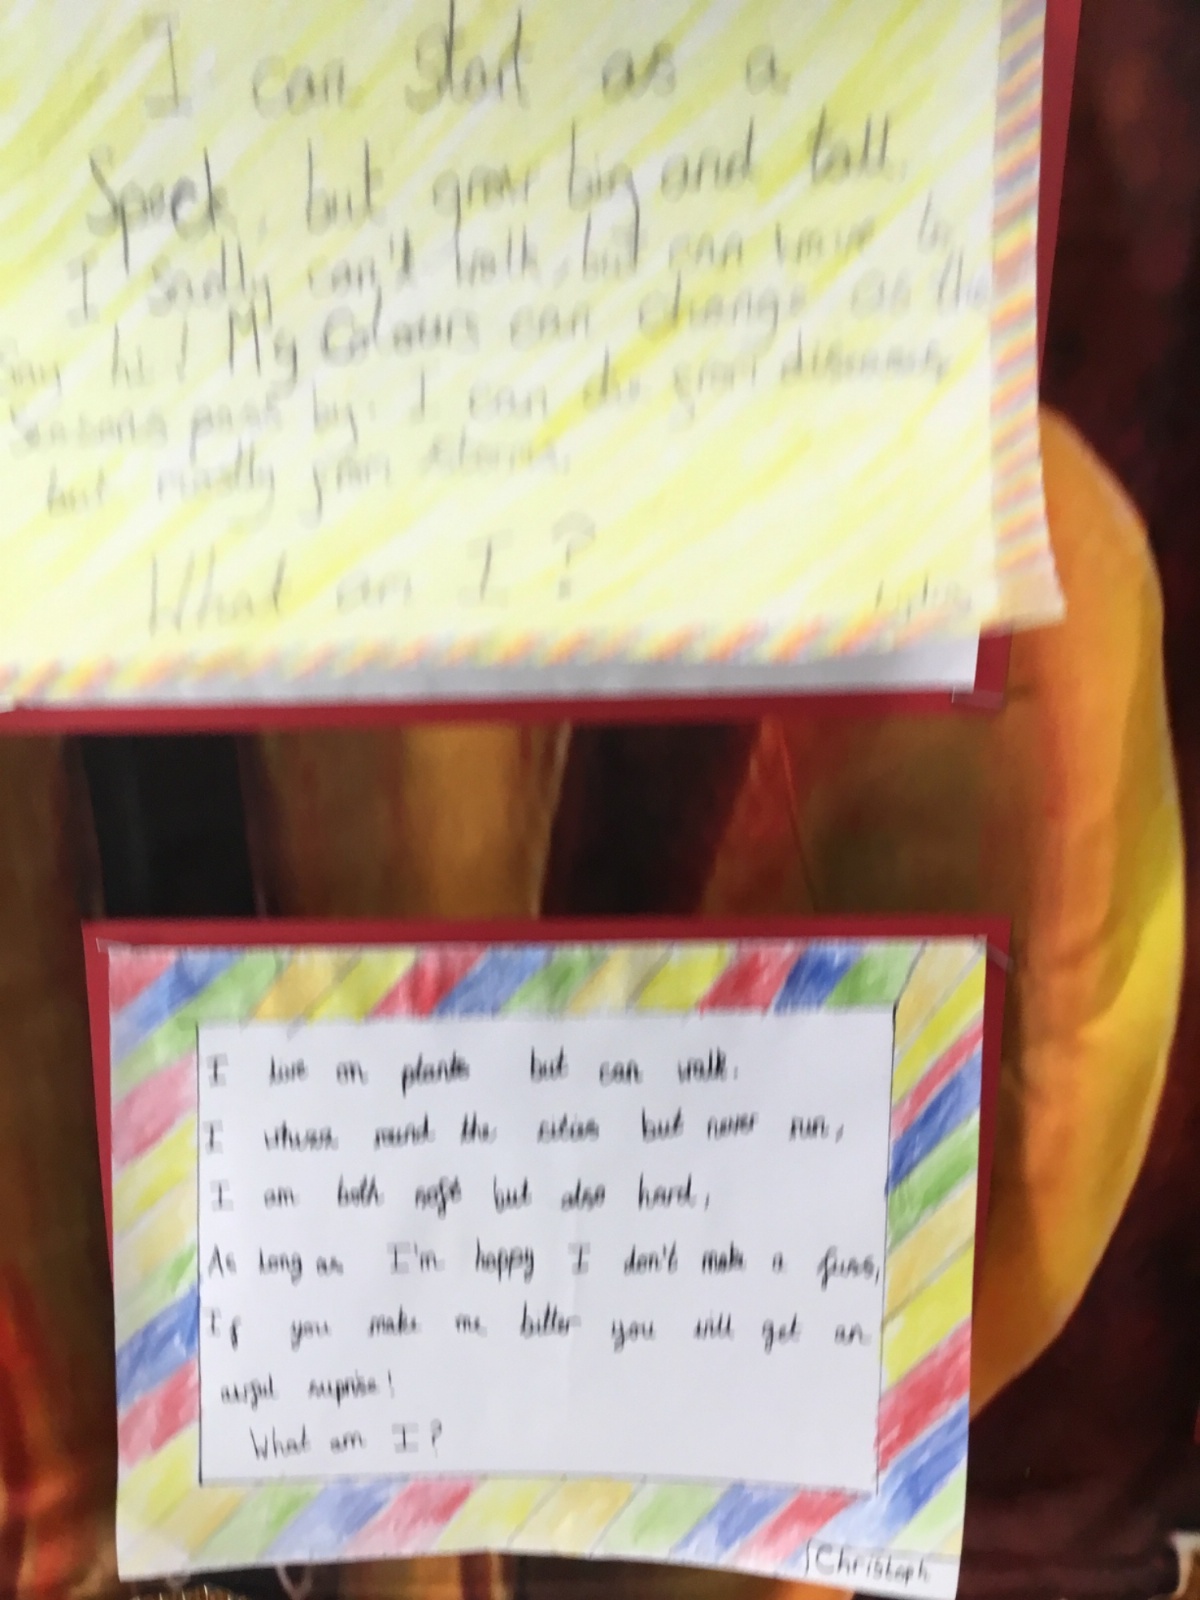 I can start as a
Speck, but grow big and tall.
I sadly can't walk, but can wave to
Say hi! My Colours can change as the
Seasons pass by. I can die from diseases,
but mostly from storms.
What am I?
I live on plants but can walk.
I whizz round the cities but never run,
I am both soft but also hard,
As long as I'm happy I don't make a fuss,
If you make me bitter you will get an
awful suprise!
What am I?
Christoph